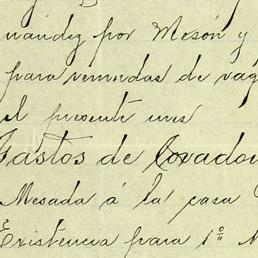 nandez por Mesón y
para remudas de vag
el presente mes
Gastos de Covadon
Mesada á la casa
Existencia para 1º